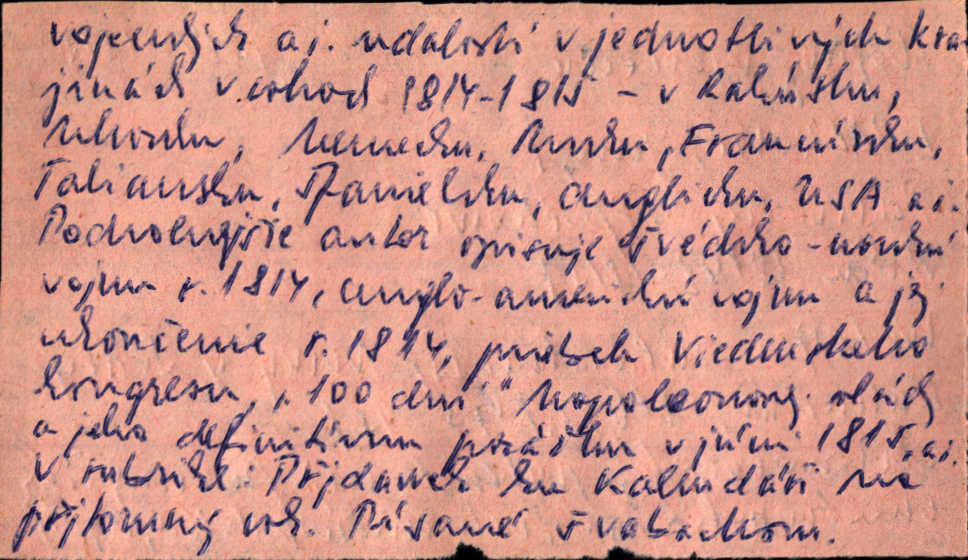 vojenských a i. udalostí v jednotlivých kra-
jinách v rokoch 1814-1815 - v Rakúsku,
Uhorsku, Nemecku, Rusku, Francúzsku,
Taliansku, Španielsku, Anglicku, USA a i.
Podrobnejšie autor opisuje švédsko-nórsku
vojnu r. 1814, anglo-americkú vojnu a jej
ukončenie r. 1814, priebeh Viedenského
kongresu, „100 dní" Napoleonovej vlády
a jeho definitívnu porážku v júni 1815, a i.
V rubrike: Přjdawek ku Kalendáři na
přjtomný rok. Písané švabachom.